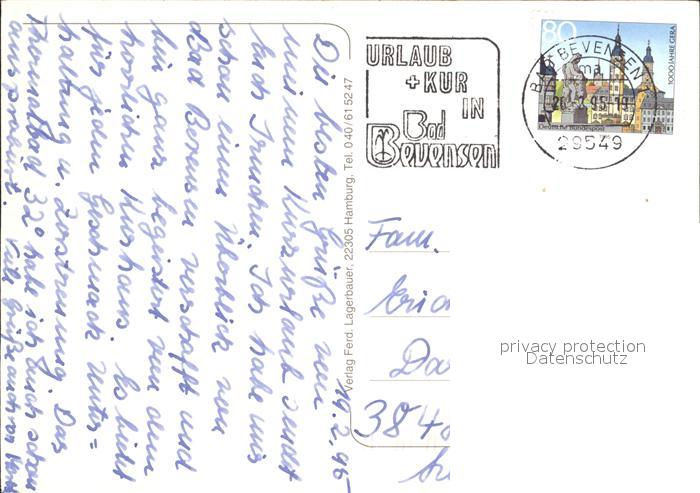 19.2.95
Die besten Grüße von
mein Kurzurlaub sendet
Euch Trudchen. Ich habe mir
schon einen Überblick von
Bad Bevensen verschafft und
bin ganz begeistert von dem
herrlichen Kurhaus. Es bietet
für jeden Geschmack Unter=
haltung u. Zerstreuung. Das
Thermalbad 32° habe ich auch schon
ausprobiert. Viele Grüße auch von
Verlag Ferd. Lagerbauer, 22305 Hamburg, Tel. 040/6152 47
URLAUB
+ KUR
IN
Bad
Bevensen
80
1000 JAHRE GERA
Deutsche Bundespost
BAD BEVENSEN
29549
Fam.
384
privacy protection
Datenschutz